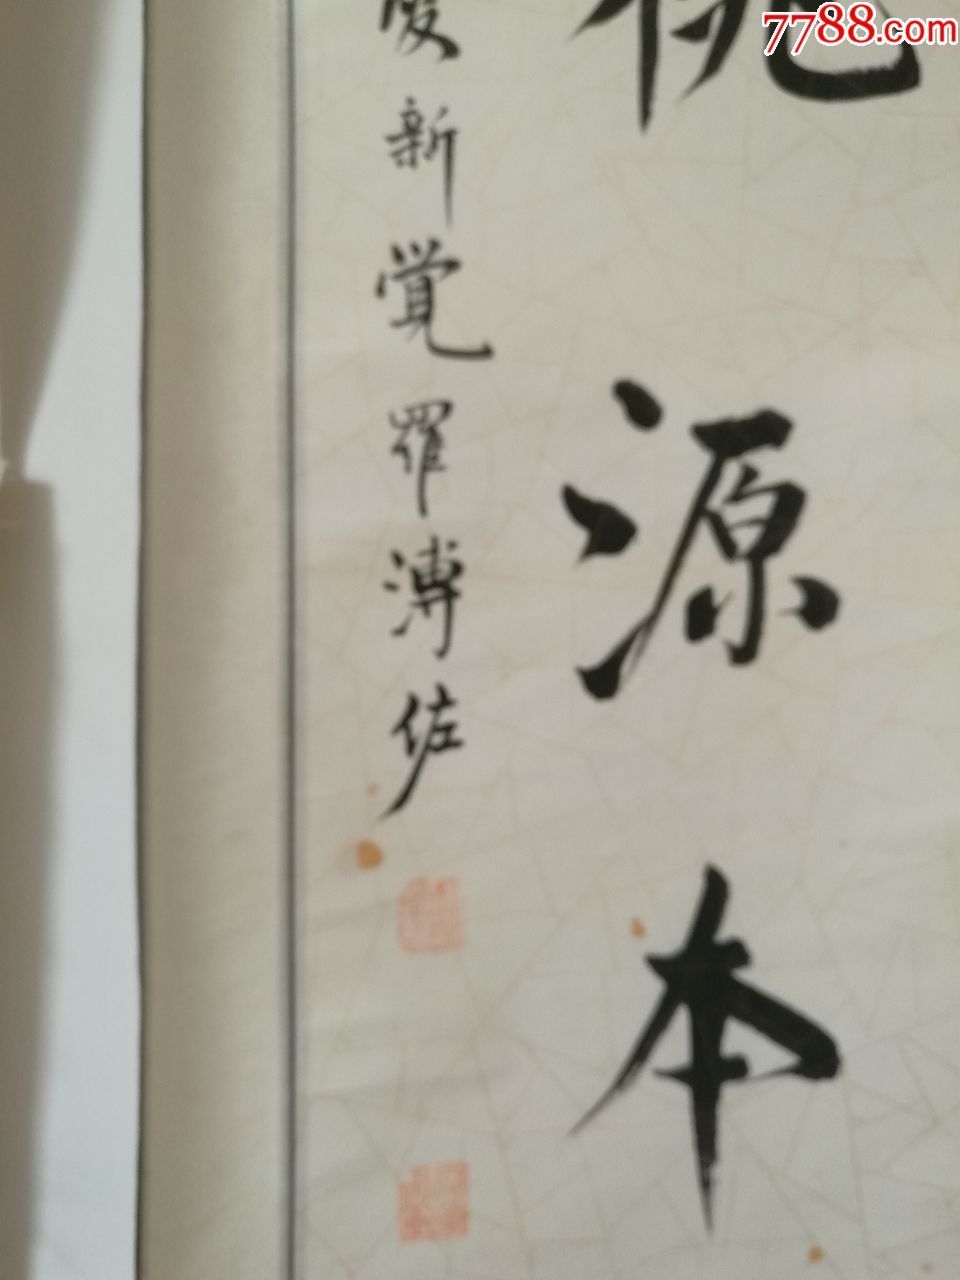 7788.com
桃源本
爱新覺羅溥佐